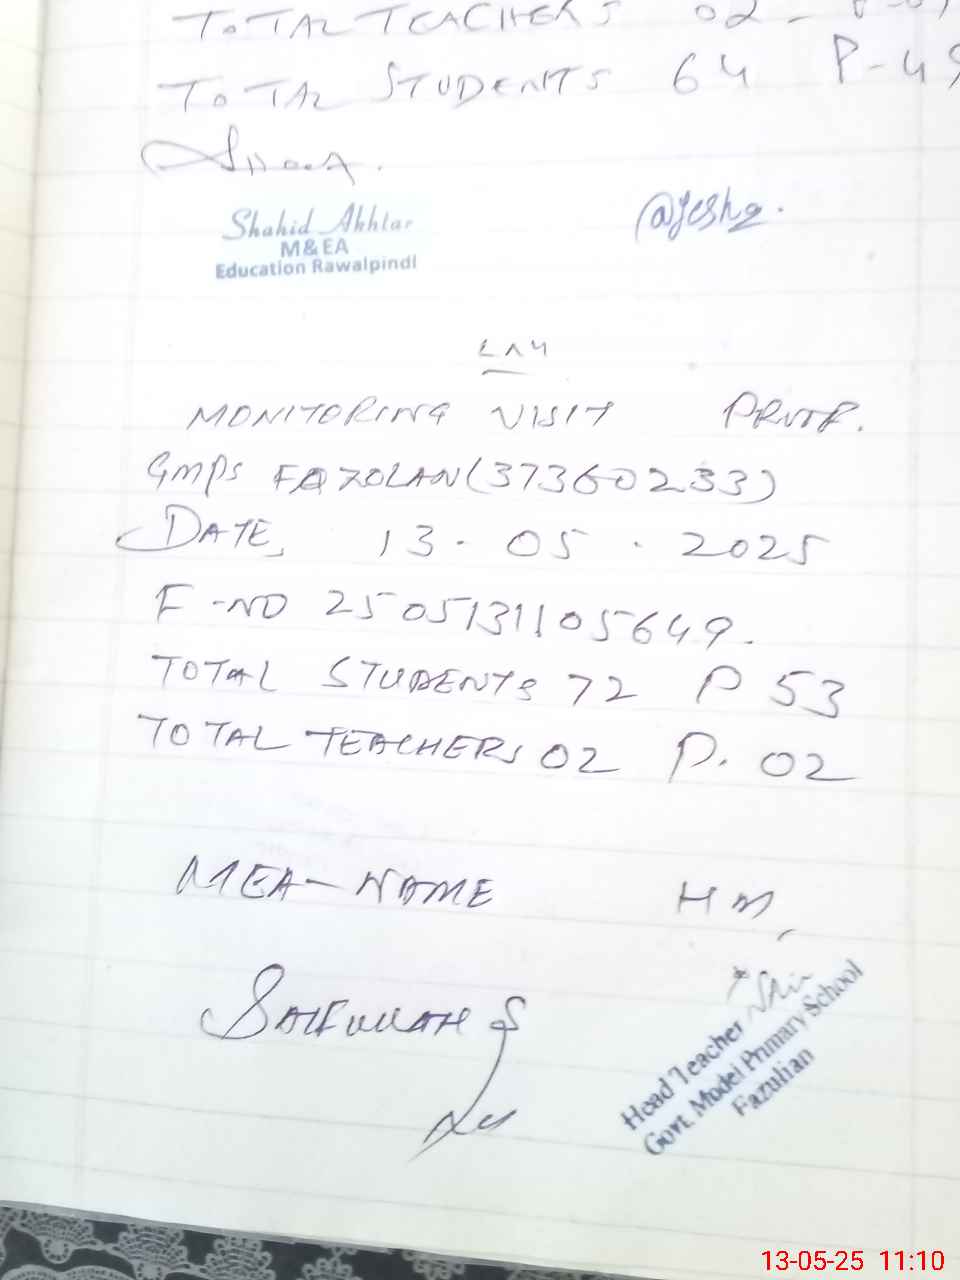 TOTAL TEACHERS 02
TOTAL STUDENTS 64 P-49
Shahid Akhtar
M&EA
Education Rawalpindi
@yesha.
MONITORING VISIT PROTR.
GMPS FAZOLAN (37360233)
DATE, 13.05.2025
F-NO 2505131105649.
TOTAL STUDENTS 72 P 53
TOTAL TEACHERS 02 P. 02
MEA-NAME HM,
SAIFULLAH
Head Teacher
Govt. Model Primary School
Fazulian
13-05-25 11:10